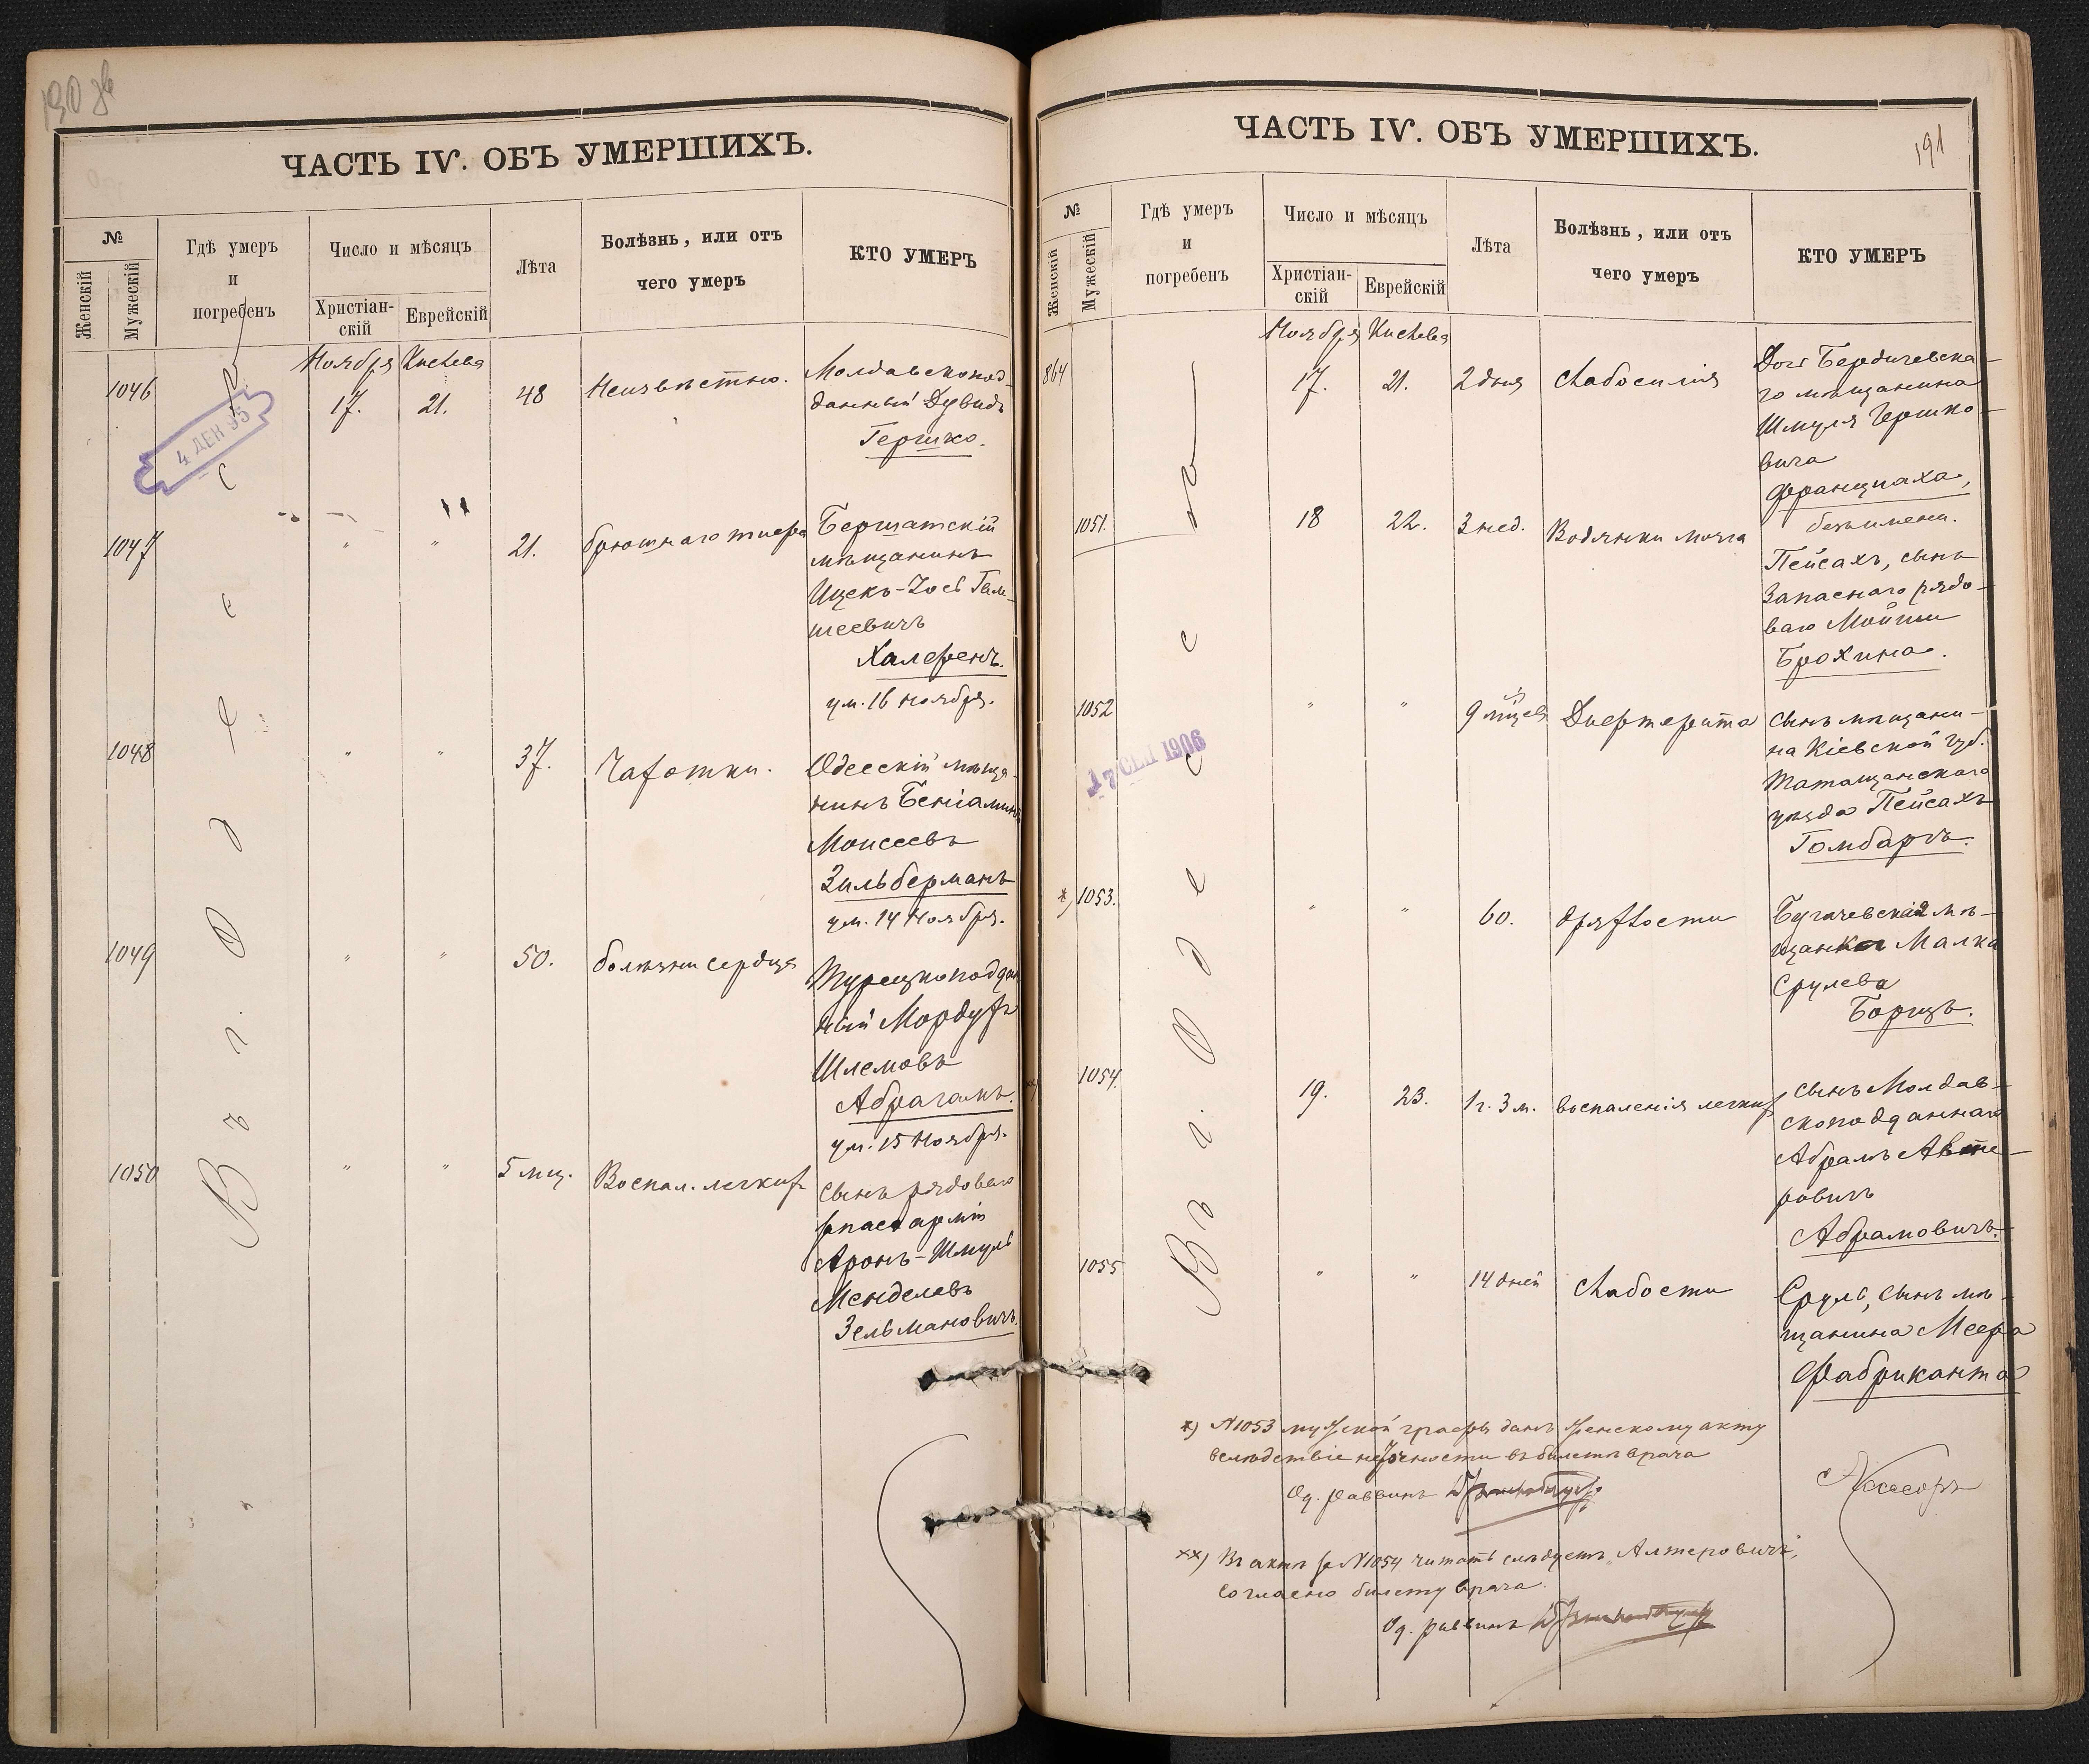 190 об
ЧАСТЬ IV. ОБЪ УМЕРШИХЪ.
№
Женскій
Мужескій
Гдѣ умеръ
и
погребенъ
Число и мѣсяцъ
Христіан-
скій
Еврейскій
Лѣта
Болѣзнь, или отъ
чего умеръ
КТО УМЕРЪ
Ноября Кислева
В ъ г. О д е с с
4 ДЕК 95
1046
17.
21.
48
Неизвѣстно.
Молдавскопод-
данный Дувидъ
Гершко.
1047
"
"
21.
брюшнаго тифа
Бершатскій
мѣщанинъ
Ицекъ-Іось
шеевичъ
Халефенъ.
ум. 16 ноября.
1048
"
"
37.
Чахотки.
Одесскій мѣща-
нинъ Беніаминъ
Моисеевъ
Зильберманъ
ум. 14 Ноября.
1049
"
"
50.
болѣзни сердца
Турецкоподдан
ный Мордухъ
Шлемовъ
Абрагамъ.
ум. 15 Ноября.
1050
"
"
5 мц.
Воспал. легкихъ
сынъ рядоваго
запас. арміи
Аронъ-Шмуль
Менделевъ
Зельмановичъ.
191
ЧАСТЬ IV. ОБЪ УМЕРШИХЪ.
№
Женскій
Мужескій
Гдѣ умеръ
и
погребенъ
Число и мѣсяцъ
Христіан-
скій
Еврейскій
Лѣта
Болѣзнь, или отъ
чего умеръ
КТО УМЕРЪ
Ноября Кислева
В ъ г. О д е с с
17 СЕН 1906
864
17.
21.
2 дня
слабосилія
Дочь Бердичевска-
го мѣщанина
Шмуля Гершко-
вича
Францмаха,
безъ имени.
1051.
18
22.
3 нед.
Водянки мозга
Пейсахъ, сынъ
Запаснаго рядо-
ваго Мойши
Брохина.
1052
"
"
9 мѣсяцевъ
Дифтерита
сынъ мѣщани-
на Кіевской губ.
Таращанскаго
уѣзда Пейсахъ
Гомбаргъ.
*) 1053.
"
"
60.
дряхлости
мѣ-
щанка Малка
Срулева
Борщъ.
**)
1054.
19.
23.
1 г. 3 м.
воспаленія легкихъ
сынъ Молдав-
скоподданнаго
Абрамъ Авте-
ровичъ
Абрамовичъ.
1055
"
"
14 дней
слабости
Сруль, сынъ мѣ-
щанина Меера
Фабриканта
*) № 1053 мужской графы данъ женскому акту
вслѣдствіе неточности въ билетѣ врача
Од. раввинъ
**) Въ актѣ за № 1054 читать слѣдуетъ „Алтеровичъ",
согласно билету врача.
Од. раввинъ